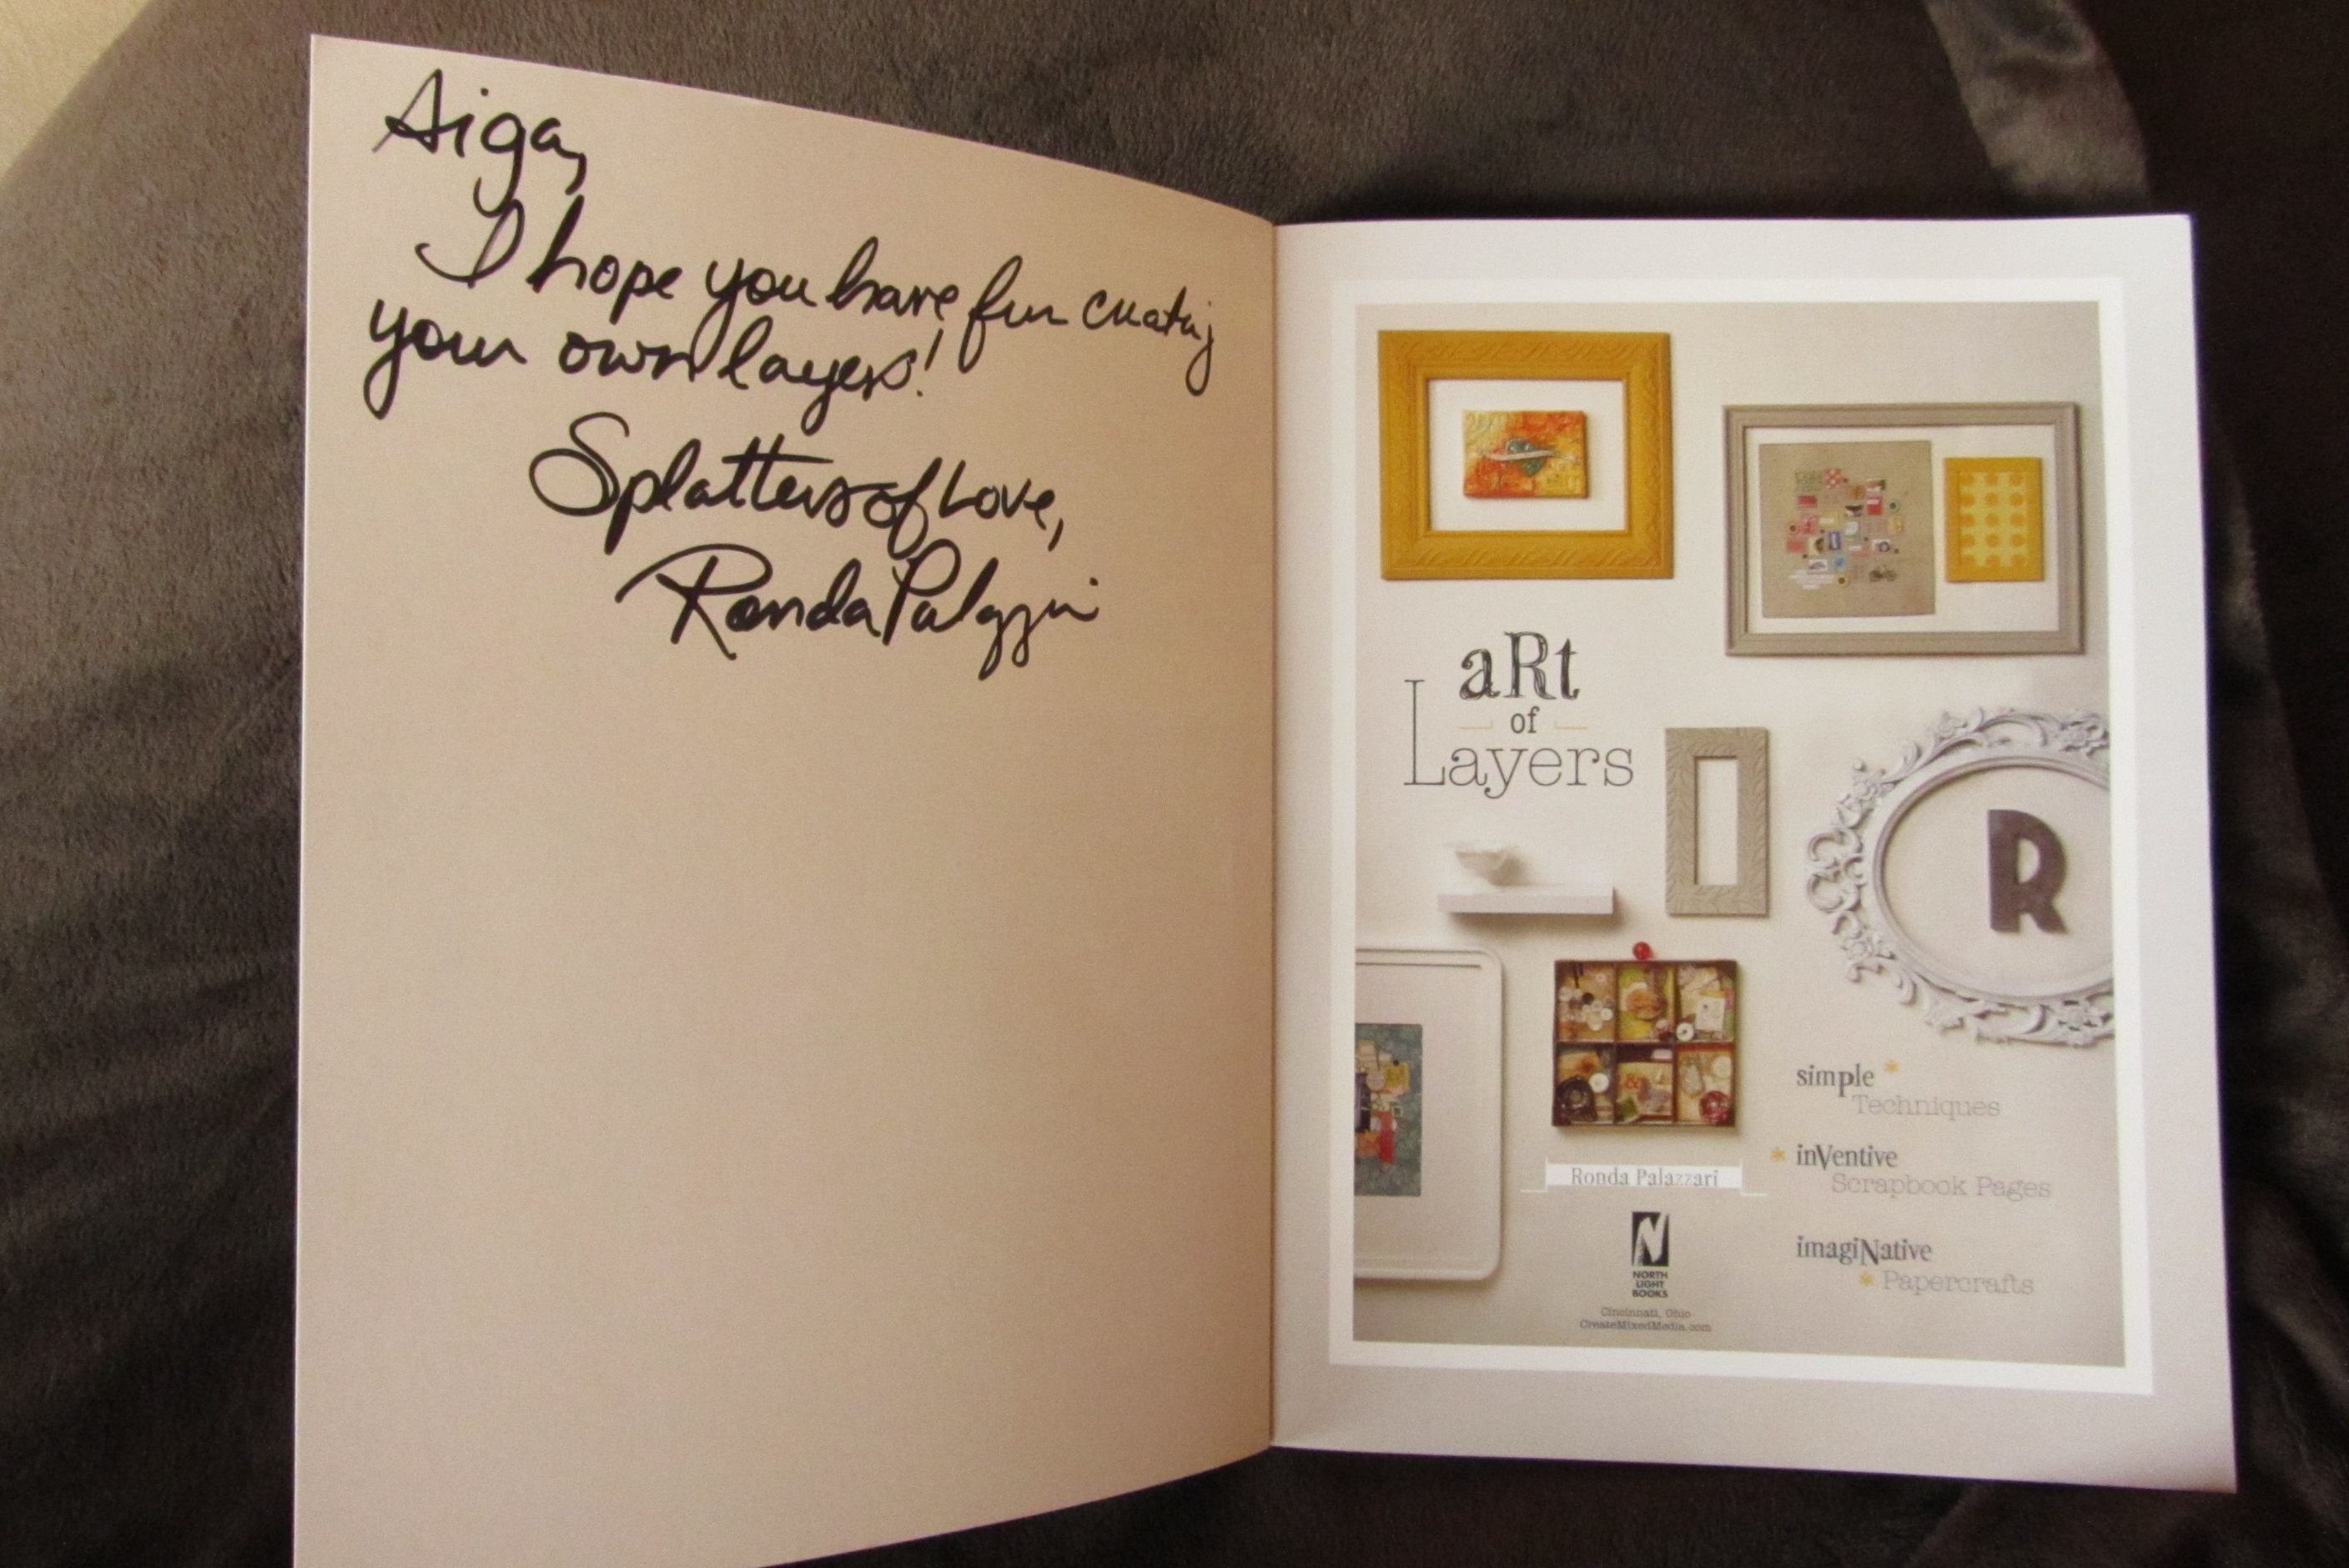 Aiga,
I hope you have fun creating
your own layers!
Splatters of Love,
Ronda Palazzari
aRt
of
Layers
R
simple
Techniques
inVentive
Scrapbook Pages
imagiNative
Papercrafts
Ronda Palazzari
N
NORTH
LIGHT
BOOKS
Cincinnati, Ohio
CreateMixedMedia.com